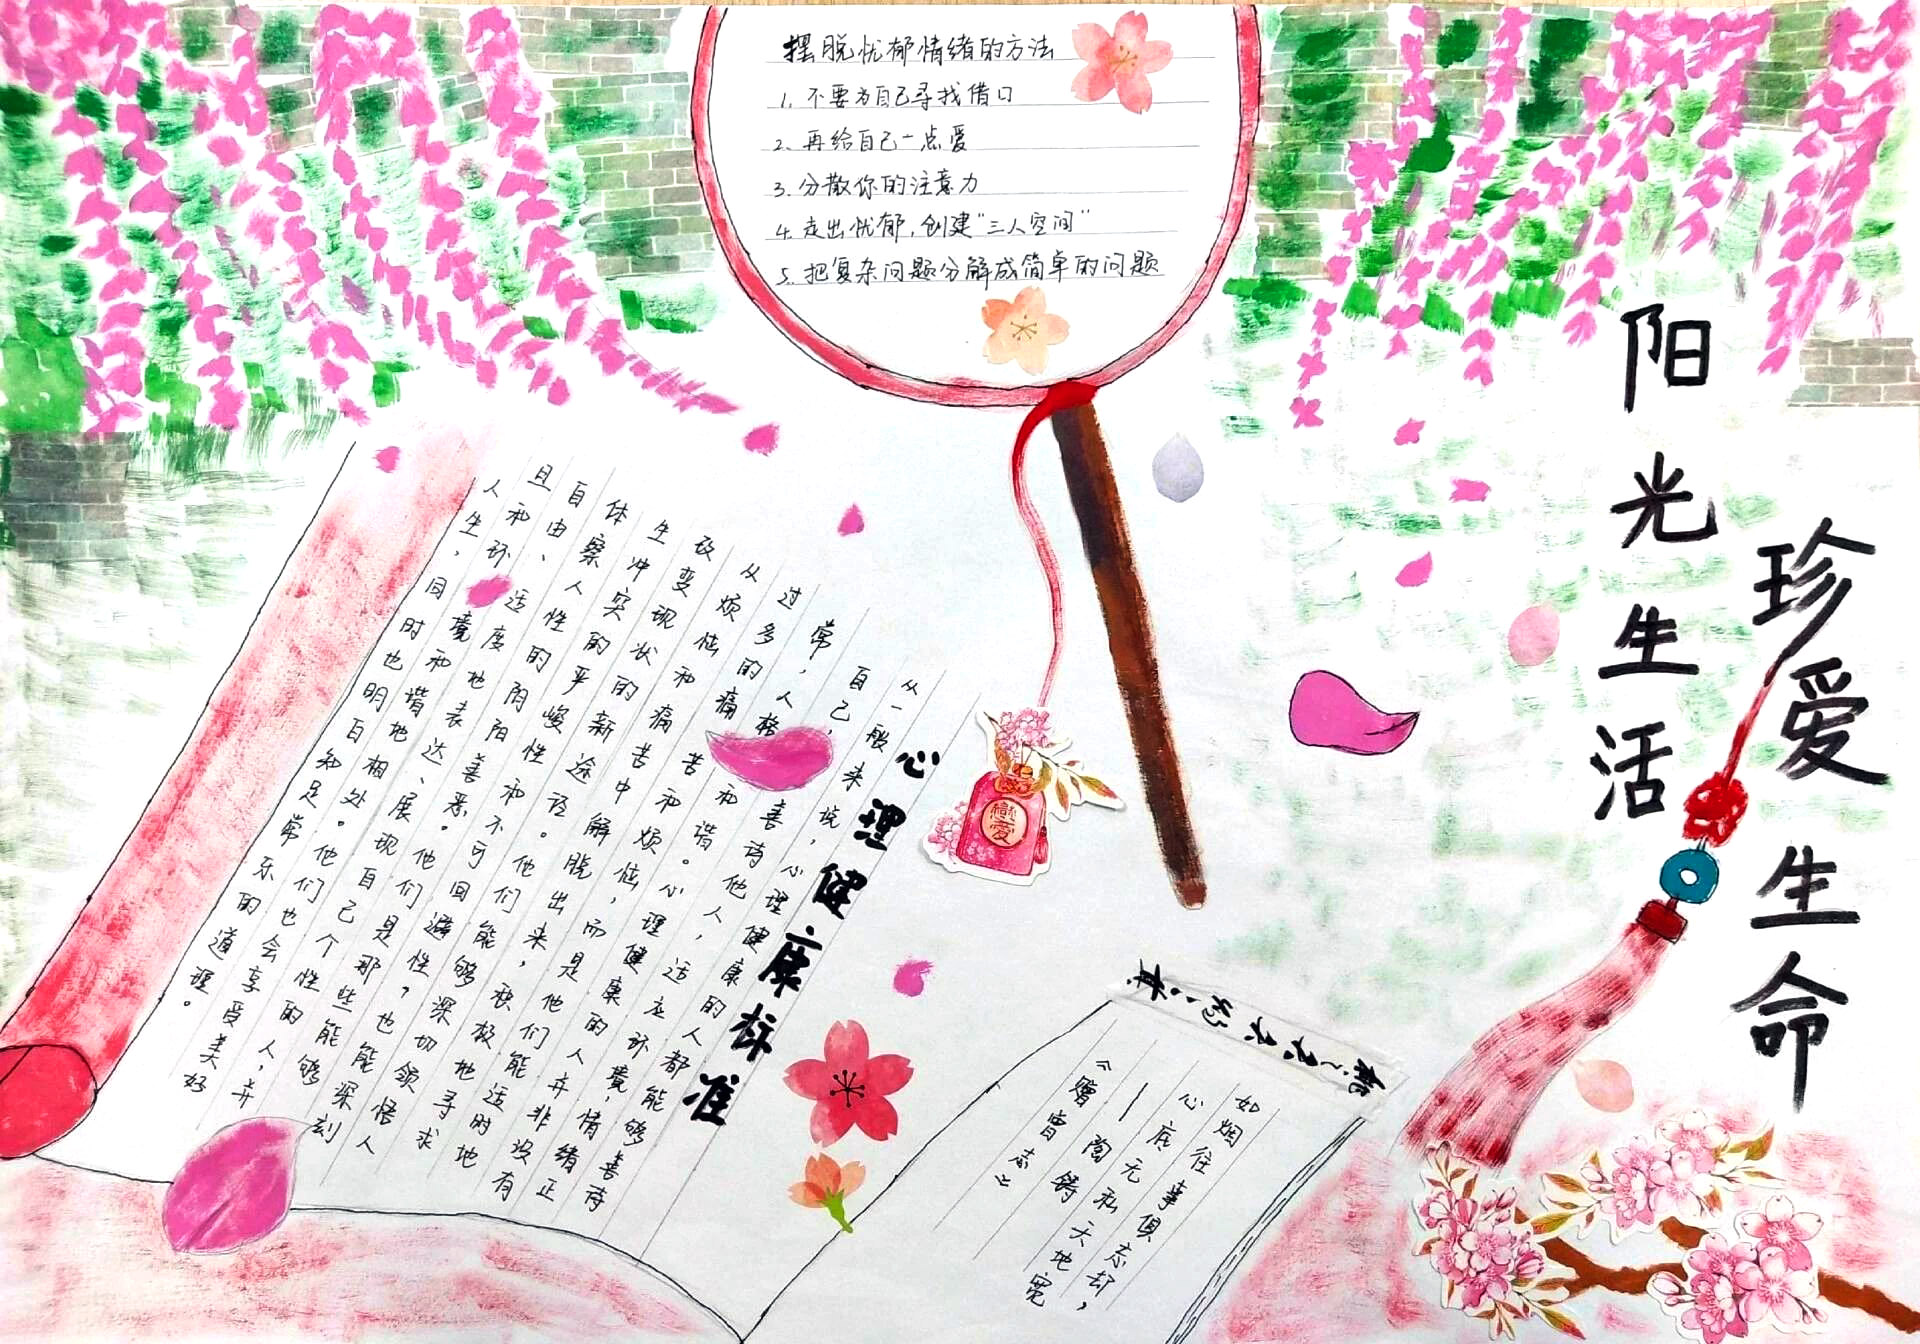 摆脱忧郁情绪的方法
1. 不要为自己寻找借口
2. 再给自己一点爱
3. 分散你的注意力
4. 走出忧郁,创建“三人空间”
5. 把复杂问题分解成简单的问题
阳光生活
珍爱生命
心理健康标准
从一般来说,心理健康的人都能够善待
自己,善待他人,适应环境,情绪正
常,人格和谐。心理健康的人并非没有
过多的痛苦和烦恼,而是他们能适时地
从烦恼和痛苦中解脱出来,积极地寻求
改变现状的新途径。他们能够深切领悟人
生冲突的严峻性和不可回避性,也能深刻
体察人性的阴阳善恶。他们是那些能够
自由、适度地表达、展现自己个性的人,并
且和环境和谐地相处。他们也会享受美好
人生,同时也明白知足常乐的道理。
戀愛
如烟往事俱忘却,
心底无私天地宽
——陶铸
《赠曾志》